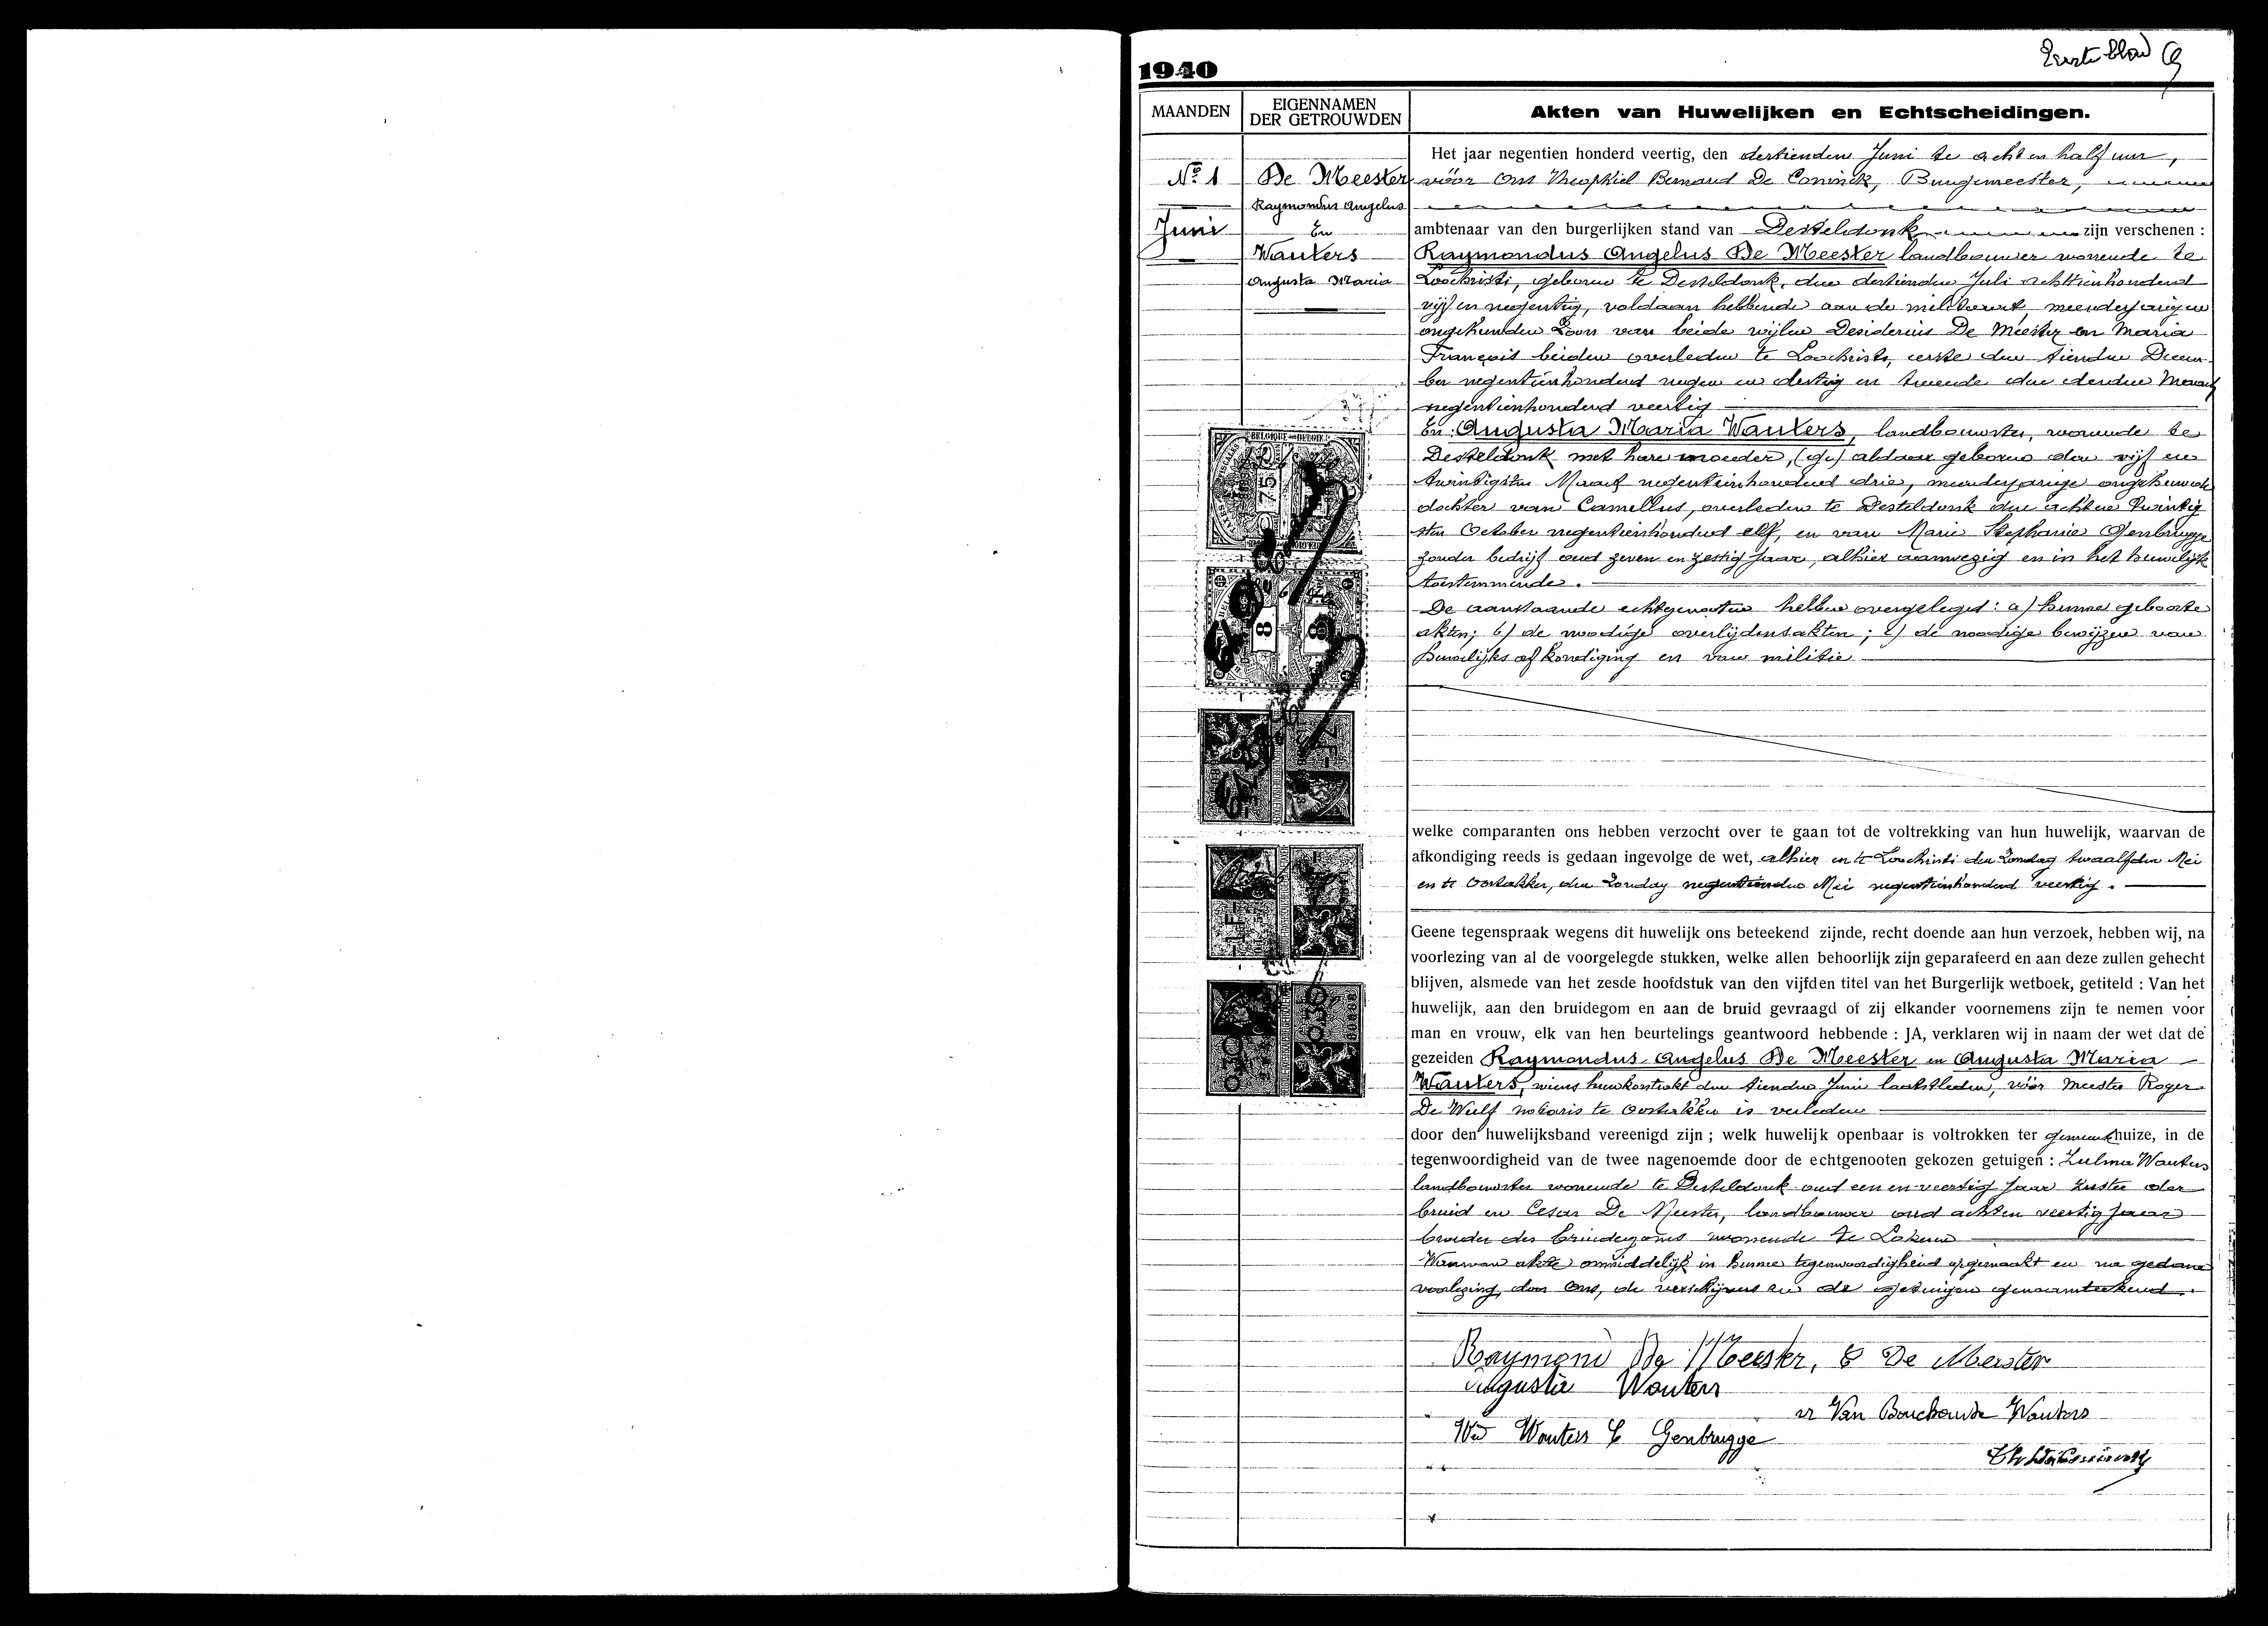 Eerste blad
1940
MAANDEN
EIGENNAMEN
DER GETROUWDEN
Akten van Huwelijken en Echtscheidingen.
Nº 1
Juni
De Meester
Raymondus Angelus
En
Wauters
Augusta Maria
Het jaar negentien honderd veertig, den dertienden Juni te acht en half uur,
vóór Ons Theophiel Bernard De Coninck, Burgemeester,
ambtenaar van den burgerlijken stand van Desteldonk zijn verschenen :
Raymondus Angelus De Meester landbouwer wonende te
Loochristi, geboren te Desteldonk, den dertienden Juli achttienhonderd
vijf en negentig, voldaan hebbende aan de militiewet, meerderjarigen
ongehuwden zoon van beide wijlen Desiderius De Meester en Maria
François beiden overleden te Loochristi, eerste den tienden Decem
ber negentienhonderd negen en dertig en tweede den derden Maart
negentienhonderd veertig
En : Augusta Maria Wauters, landbouwster, wonende te
Desteldonk met hare moeder, aldaar geboren den vijf en
twintigsten Maart negentienhonderd drie, meerderjarige ongehuwde
dochter van Camellus, overleden te Desteldonk den achten twintig
sten October negentienhonderd elf, en van Marie Stephanie Genbrugge
zonder bedrijf oud zeven en zestig jaar, alhier aanwezig en in het huwelijk
toestemmende.
De aanstaande echtgenooten hebben overgelegd : a) hunne geboorte
akten; b) de noodige overlijdensakten ; c) de noodige bewijzen van
huwelijks afkondiging en van militie
welke comparanten ons hebben verzocht over te gaan tot de voltrekking van hun huwelijk, waarvan de
afkondiging reeds is gedaan ingevolge de wet, alhier en te Loochristi den Zondag twaalfden Mei
en te Oostakker, den Zondag negentienden Mei negentienhonderd veertig.
Geene tegenspraak wegens dit huwelijk ons beteekend zijnde, recht doende aan hun verzoek, hebben wij, na
voorlezing van al de voorgelegde stukken, welke allen behoorlijk zijn geparafeerd en aan deze zullen gehecht
blijven, alsmede van het zesde hoofdstuk van den vijfden titel van het Burgerlijk wetboek, getiteld : Van het
huwelijk, aan den bruidegom en aan de bruid gevraagd of zij elkander voornemens zijn te nemen voor
man en vrouw, elk van hen beurtelings geantwoord hebbende : JA, verklaren wij in naam der wet dat de
gezeiden Raymondus Angelus De Meester en Augusta Maria
Wauters, wiens huwkontrakt den tienden Juni laatstleden, vóór Meester Roger
De Wulf notaris te Oostakker is verleden
door den huwelijksband vereenigd zijn ; welk huwelijk openbaar is voltrokken ter gemeentehuize, in de
tegenwoordigheid van de twee nagenoemde door de echtgenooten gekozen getuigen : Zulma Wauters
landbouwster wonende te Desteldonk oud een en veertig jaar zuster der
bruid en Cesar De Meester, landbouwer oud acht en veertig jaar
broeder des bruidegoms wonende te Lokeren
Waarvan akte onmiddelijk in hunne tegenwoordigheid opgemaakt en na gedane
voorlezing, door Ons, de verschijners en de getuigen genaamteekend.
Raymond De Meester, C De Meester
Augusta Wauters
Van Bouchaute Wauters
We Wauters Genbrugge
75
8
8
1 F
0.30
0.30